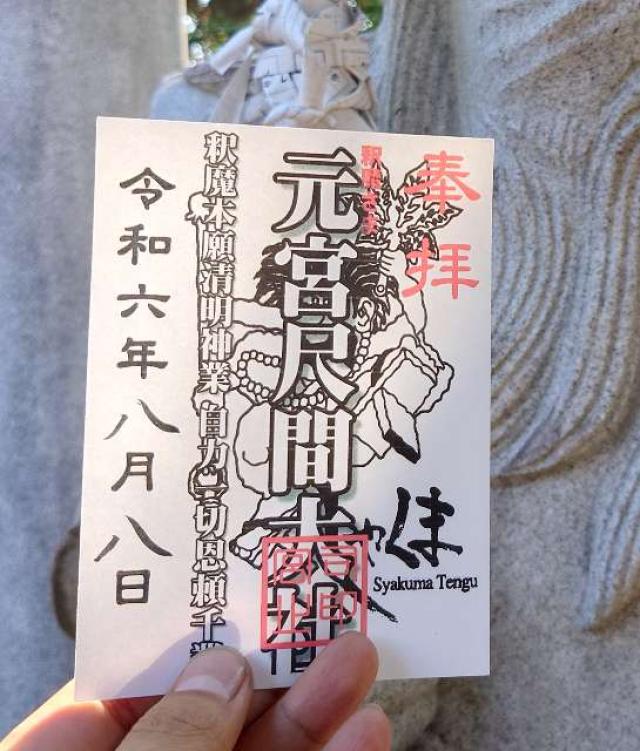 奉拝
釈魔さま
元宮尺間大社
釈魔本願清明神業自力一切恩頼千
令和六年八月八日
しゃくま
Syakuma Tengu
宮司
之印